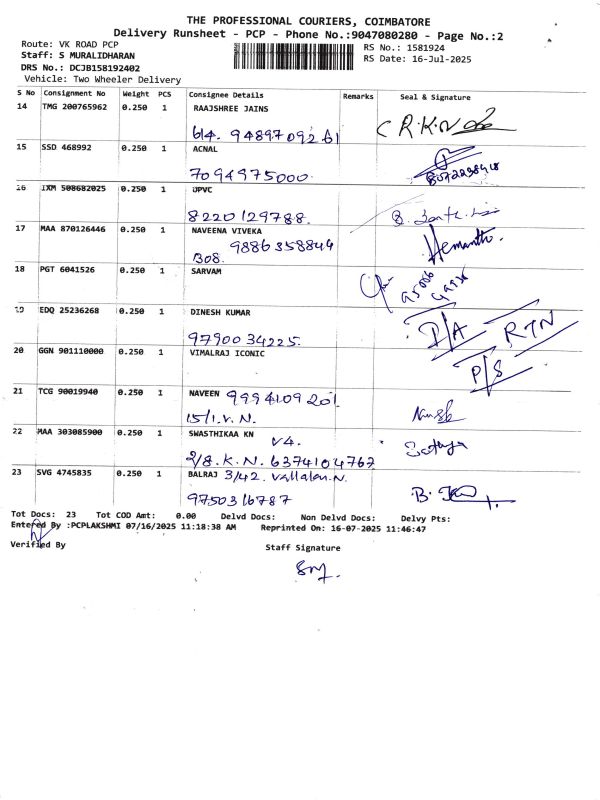 THE PROFESSIONAL COURIERS, COIMBATORE
Delivery Runsheet - PCP - Phone No.:9047080280 - Page No.:2
Route: VK ROAD PCP
Staff: S MURALIDHARAN
DRS No.: DCJB158192402
Vehicle: Two Wheeler Delivery
RS No.: 1581924
RS Date: 16-Jul-2025
S No Consignment No Weight PCS Consignee Details Remarks Seal & Signature
14 TMG 200765962 0.250 1 RAAJSHREE JAINS
614. 9489709261 R.K.N
15 SSD 468992 0.250 1 ACNAL
7094975000.
16 IXM 508682025 0.250 1 UPVC
8220129788.
17 MAA 870126446 0.250 1 NAVEENA VIVEKA
9886358844 Hemanth
B08.
18 PGT 6041526 0.250 1 SARVAM
19 EDQ 25236268 0.250 1 DINESH KUMAR
9790034225. D/A RTN
20 GGN 901110000 0.250 1 VIMALRAJ ICONIC
P/S
21 TCG 90019940 0.250 1 NAVEEN 9994109201
15/1.V.N.
22 MAA 303085900 0.250 1 SWASTHIKAA KN V4.
2/8.K.N. 6374104767 Sathya
23 SVG 4745835 0.250 1 BALRAJ 3/42. Vallalar.N.
9750316787 B.
Tot Docs: 23 Tot COD Amt: 0.00 Delvd Docs: Non Delvd Docs: Delvy Pts:
Entered By :PCPLAKSHMI 07/16/2025 11:18:38 AM Reprinted On: 16-07-2025 11:46:47
Verified By
Staff Signature